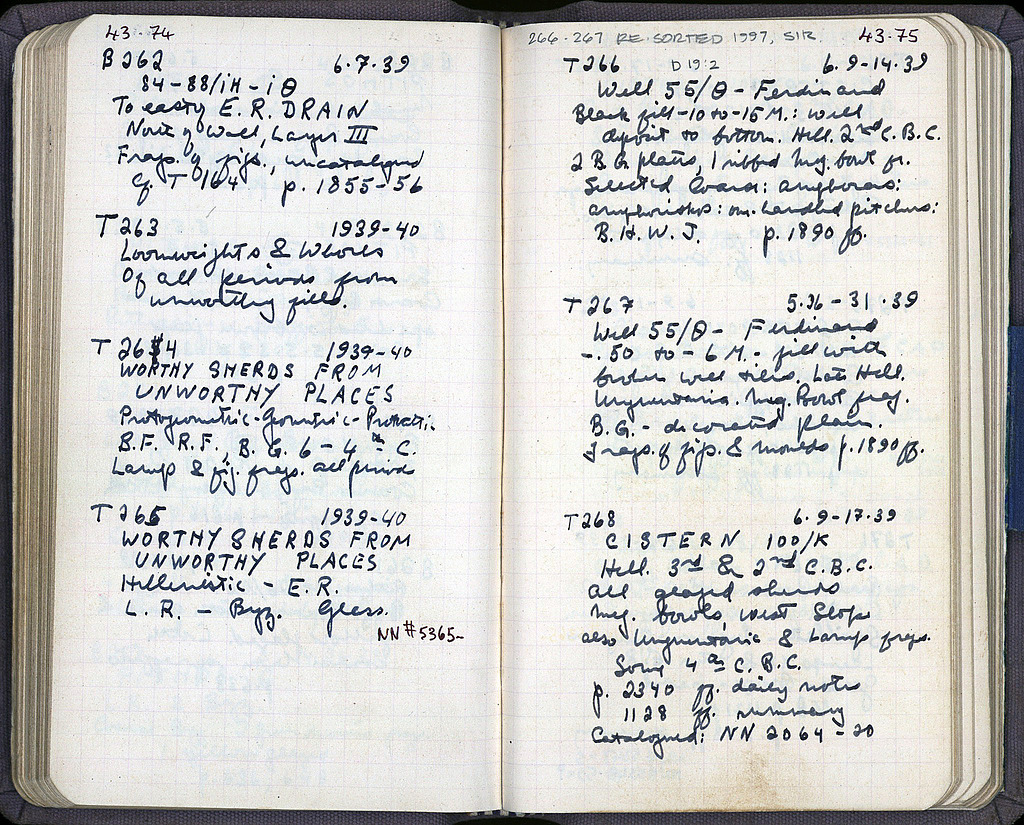 43-74
B 262 6.7.39
84-88/ΙΗ - ΙΘ
To easty E.R. DRAIN
North of Wall, Layer III
Frags. of figs., uncataloged
cf. T 164 p. 1855-56
T 263 1939-40
Loomweights & Whorls
Of all periods from
unworthy fills.
T 264 1939-40
WORTHY SHERDS FROM
UNWORTHY PLACES
Protogeometric-Geometric-Protoatti.
B.F. R.F., B.G. 6-4th C.
Lamp & fig. frags. all periods
T 265 1939-40
WORTHY SHERDS FROM
UNWORTHY PLACES
Hellenistic - E.R.
L.R. - Byz. Glass.
NN # 5365-
266-267 RE-SORTED 1997, SIR. 43-75
T 266 D 19:2 6.9-14.39
Well 55/Θ - Ferdinand
Black fill -10 to -15 M.: well
deposit to bottom. Hell. 2nd C. B.C.
2 B.G. plates, 1 ribbed Meg. bowl fr.
Selected Coarse: amphoras:
amphoriskos: one handled pitchers:
B.H.W.J. p. 1890 ff.
T 267 5.26-31.39
Well 55/Θ - Ferdinand
-.50 to -6 M. - fill with
broken well tiles. Late Hell.
Unguentaria. Meg. Bowl frag.
B.G. - decorated plain.
Frags. of figs. & moulds p. 1890 ff.
T 268 6.9-17.39
CISTERN 100/Κ
Hell. 3rd & 2nd C.B.C.
All glazed sherds
Meg. bowls, West Slope
also Unguentaria & Lamp frags.
Some 4th C. B.C.
p. 2340 ff. daily notes
1128 ff. summary
Catalogued: NN 2064-20